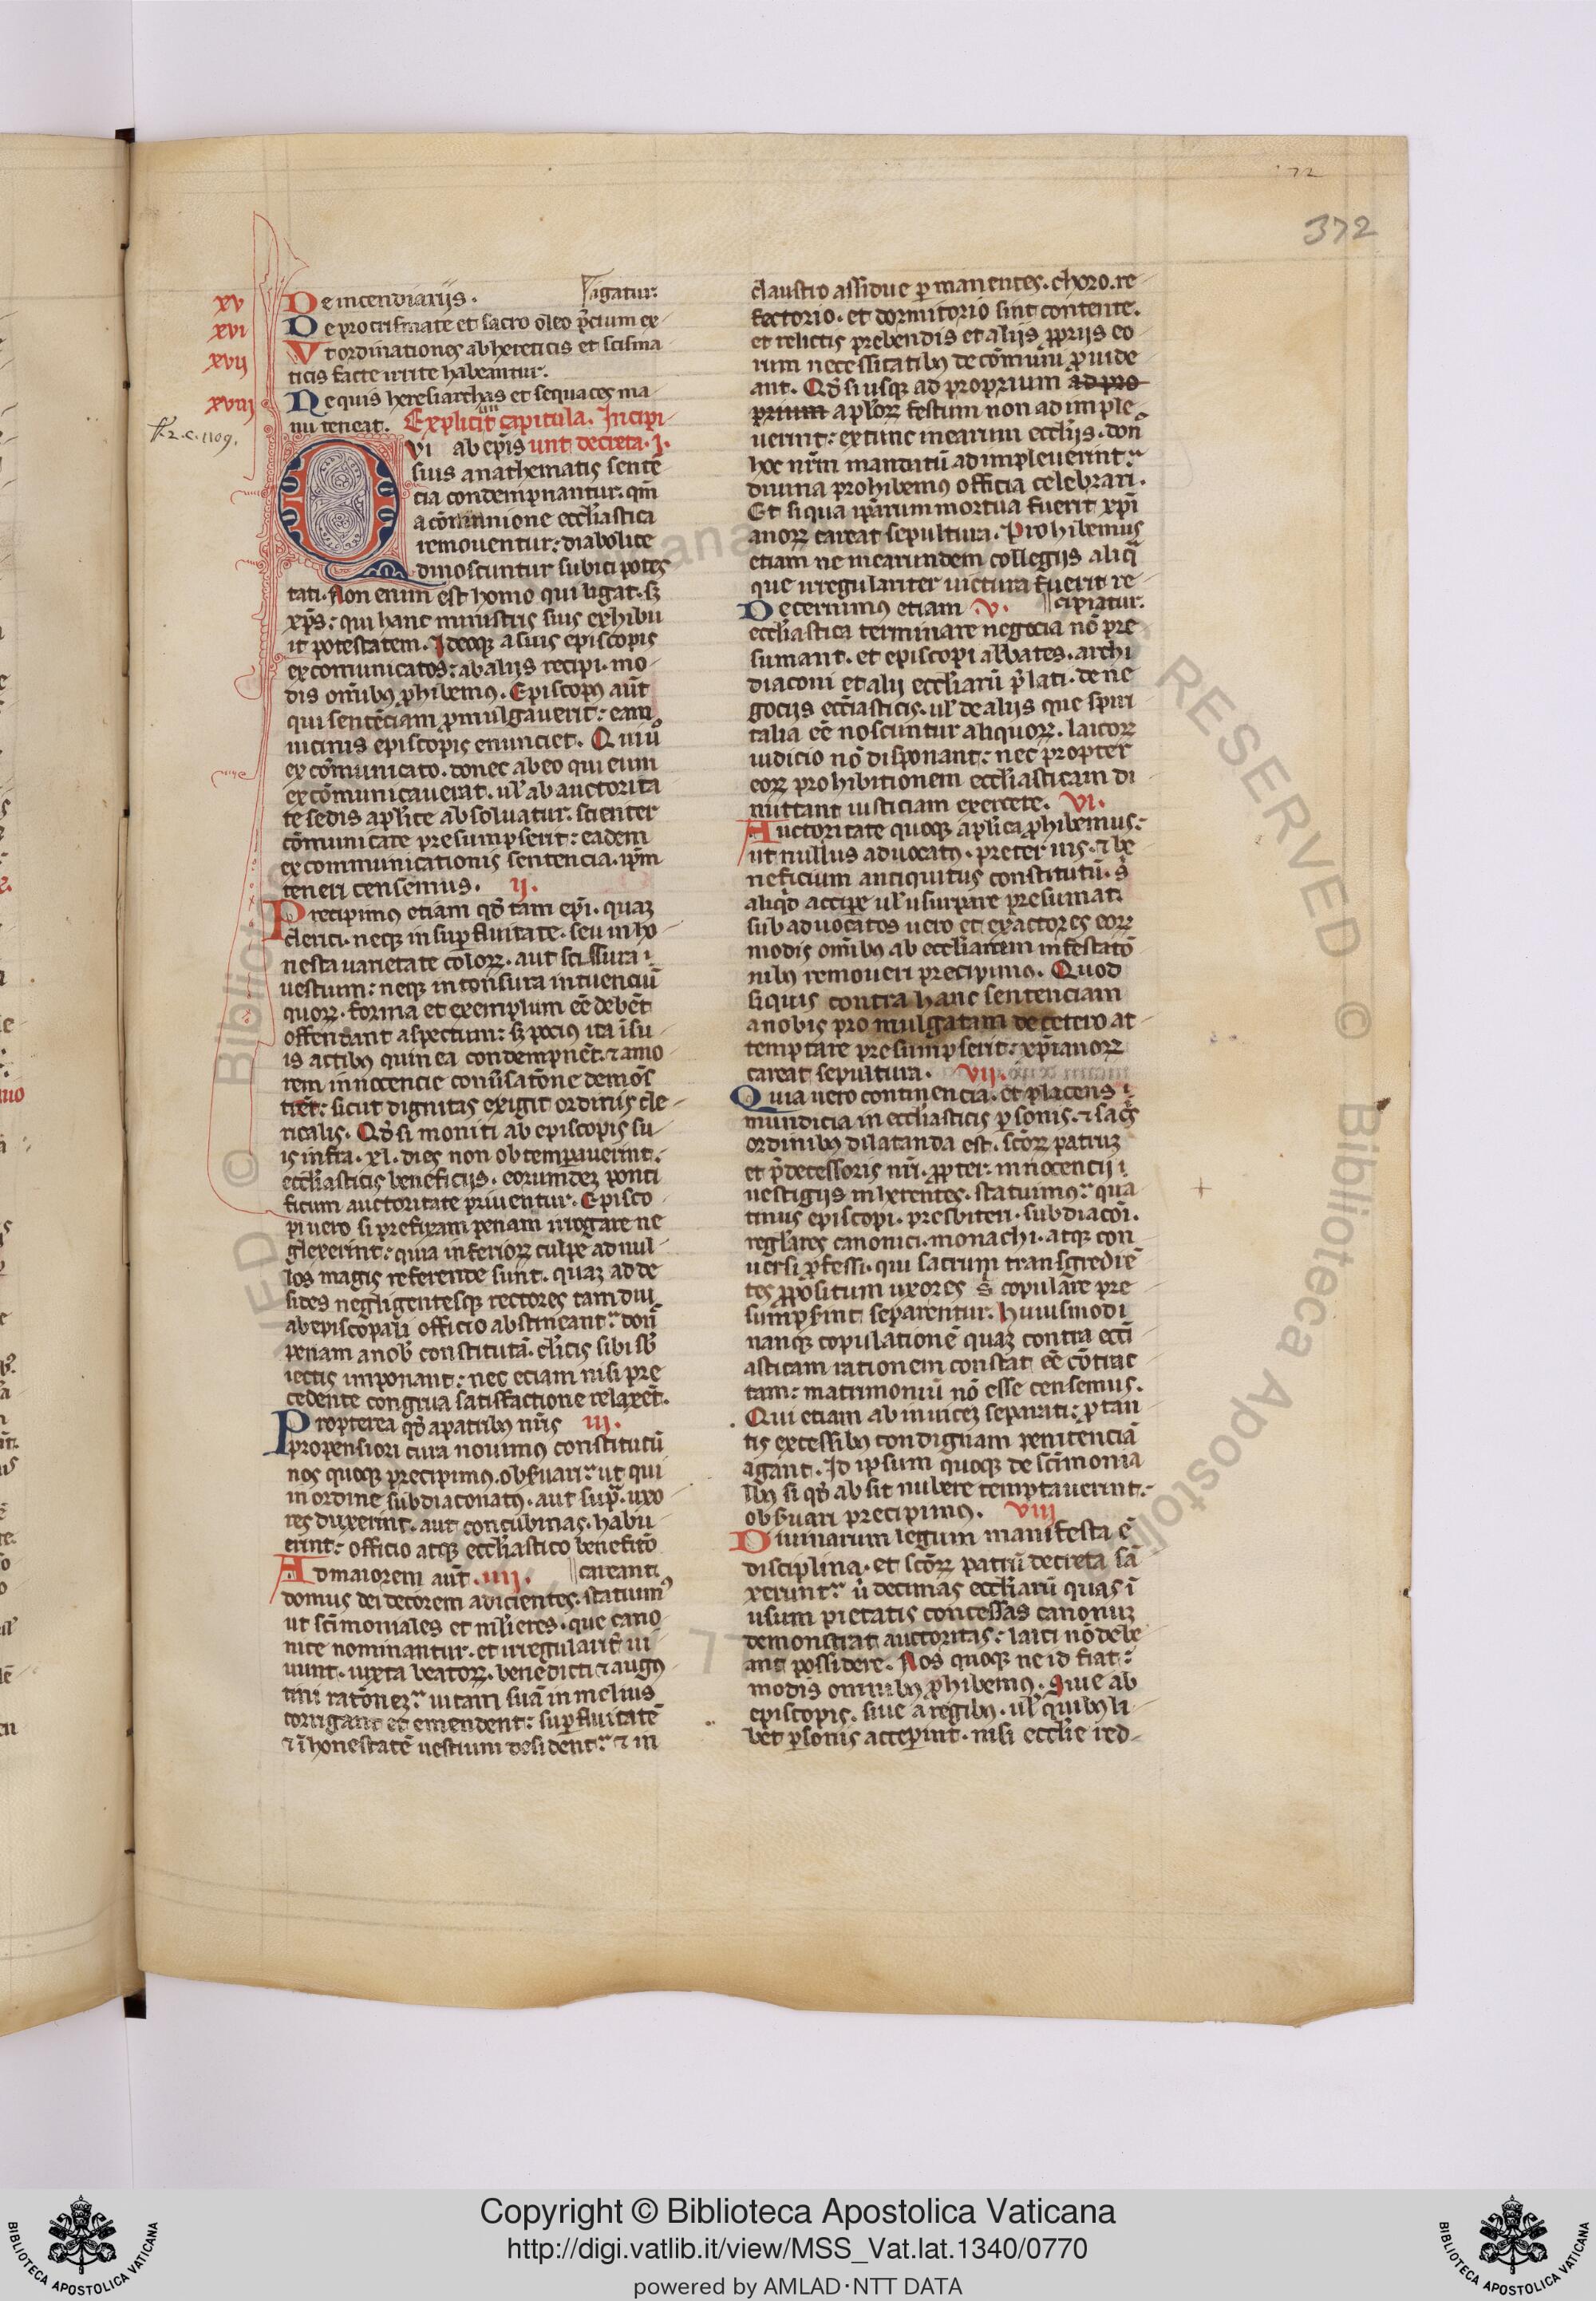 72
372
xv De incendiarijs. / igatur.
xvi De pro crismate et sacro oleo p̄cium ex
xvij Vt ordinationes ab hereticis et scisma
ticis facte irrite habeantur.
xviij Ne quis heresiarchas et sequaces ma
nu teneat. Explicit capitula. Incipi
Qvi ab ep̄is unt decreta. I.
suis anathematis sentē
cia condempnantur. qm̄
a cōmunione ecclīastica
remouentur: diabolice
dinoscuntur subici potes
tati. Non enim est homo qui ligat. sꝫ
xp̄s: qui hanc ministris suis exhibu
it potestatem. Ideoqꝫ a suis episcopis
excomunicatos: ab alijs recipi. mo
dis om̄ibꝰ ꝓhibemꝰ. Episcopꝰ aūt
qui sentēciam ꝓmulgauerit: eam
uicinis episcopis enunciet. Qui ū̓
excōmunicato. donec ab eo qui eum
excōmunicauerat. ul̓ ab auctorita
te sedis apl̓ice absoluatur. scienter
cōmunicare presumpserit: eadem
excommunicationis sentencia. ip̄m
teneri censemus. ij.
Precipimꝰ etiam qd̓ tam ep̄i. quaꝫ
clerici. neqꝫ in suꝑfluitate. seu inho
nesta uarietate coloꝝ. aut scissura ī
uestium: neqꝫ in tonsura intuenciū
quoꝝ. forma et exemplum eē debēt
offendant aspectum: sꝫ pocius ita ī su
is actibꝰ qui in ea condempnēt. ⁊ amo
rem innocencie conūsatōne demōs
trēt: sicut dignitas exigit ordinis cle
ricalis. Qd̓ si moniti ab episcopis su
is infra. xl. dies non obtemꝑauerint:
ecclīasticis beneficijs. eorumdeꝫ ponti
ficum auctoritate priuentur. Episco
pi uero si prefixam penam irrogare ne
glexerint: quia inferioꝝ culpe ad nul
los magis referende sunt. quaꝫ ad de
sides negligentesqꝫ rectores tam diu
ab episcopali officio abstineant: don̄
penam a nob̓ constitutā. cl̓icis sibi sb̓
iectis imponant: nec eciam nisi pre
cedente congrua satisfactione relaxēt.
Propterea qd̓ a patribꝰ nr̄is iii.
propensiori cura nouimꝰ constitutū
nos quoqꝫ precipimꝰ. obs̓uari: ut qui
in ordine subdiaconatꝰ. aut supᵃ. uxo
res duxerint. aut concubinas. habu
erint: officio atqꝫ ecclīastico beneficō
Ad maiorem aūt. iiij. // careant.
domus dei decorem adicientes. statuimꝰ
ut sc̄imoniales et mul̓ieres. que cano
nice nominantur. et irregularit̓ ui
uunt. iuxta beatoꝝ. benedicti ⁊ augus
tini ratōneꝫ: uitam suā in melius
corrigant et emendent: suꝑfluitatē
⁊ īhonestatē uestium desident: ⁊ in
claustro assidue ꝑmanentes. choro. re
fectorio. et dormitorio sint contente.
et relictis prebendis et alijs ꝓprijs eo
rum necessitatibꝰ de cōmuni ꝓuide
ant. Qd̓ si usqꝫ ad proprium ad pro
prium apl̓oꝝ festum non adimple
uerint: extunc in earum eccl̓ijs. don̄
hoc nr̄m mandatū adimpleuerint:
diuina prohibemꝰ officia celebrari.
Et si qua ip̄arum mortua fuerit xp̄i
anoꝝ careat sepultura. Prohibemus
etiam ne in earundem collegijs aliq̄
que irregulariter uictura fuerit re
Decernimꝰ etiam .v. // cipiatur.
ecclīastica terminare negocia nō pre
sumant. et episcopi abbates. archi
diaconi et alij ecclīarū p̄lati. de ne
gocijs ecc̄iasticis. ul̓ de alijs que spiri
talia eē noscuntur aliquoꝝ. laicoꝝ
iudicio nō disponant: nec propter
eoꝝ prohibitionem ecclīasticam di
mittant iusticiam exercere. vi.
Auctoritate quoqꝫ apl̓ica ꝓhibemus:
ut nullus aduocatꝰ. preter ius. ⁊ be
neficium antiquitus constitutū. s̓
aliqd̓ accipe ul̓ usurpare presumat
sub aduocatos uero et exactores eoꝝ
modis om̄ibꝰ ab ecclīarum infestatō
nibꝰ remoueri precipimꝰ. Quod
siquis contra hanc sentenciam
a nobis promulgatam de cetero at
temptare presumpserit: xp̄ianoꝝ
careat sepultura. vij.
Quia uero continencia. et placens ī
mundicia in ecclīasticis ꝑsonis. ⁊ sac̓s
ordinibꝰ dilatanda est. sc̄oꝝ patruꝫ
et p̄decessoris nr̄i. ꝓpter: innocencij ī
uestigijs inherentes. statuimꝰ: qua
tinus episcopi. presbiteri. subdiacōi.
regl̓ares canonici. monachi. atqꝫ con
uersi ꝓfessi. qui sacrum transgrediē
tes ꝓpositum uxores s̓ copulare pre
sumps̓int separentur. Huiusmodi
nanqꝫ copulationē quaꝫ contra eccl̓i
asticam rationem constat eē cōtrac
tam: matrimoniū nō esse censemus.
Qui etiam ab inuiceꝫ separati: ꝓ tan
tis excessibꝰ condignam penitenciā
agant. Id ipsum quoqꝫ de sc̄imonia
libꝰ si qd̓ absit nubere temptauerint:
obs̓uari precipimus. viii
Diuinarum legum manifesta ē
disciplina. et sc̄oꝝ patrū decreta sā
xerunt: ū̓ decimas ecclīarū quas ī
usum pietatis concessas canonuꝫ
demonstrat auctoritas: laici nō debe
ant possidere. Nos quoqꝫ ne id fiat:
modis omnibꝰ ꝓhibemꝰ. Siue ab
episcopis. siue a regibꝰ. ul̓ quibꝰ li
bet ꝑsonis acceꝑint. nisi ecclīe red
Copyright © Biblioteca Apostolica Vaticana
http://digi.vatlib.it/view/MSS_Vat.lat.1340/0770
powered by AMLAD·NTT DATA
BIBLIOTECA APOSTOLICA VATICANA
BIBLIOTECA APOSTOLICA VATICANA